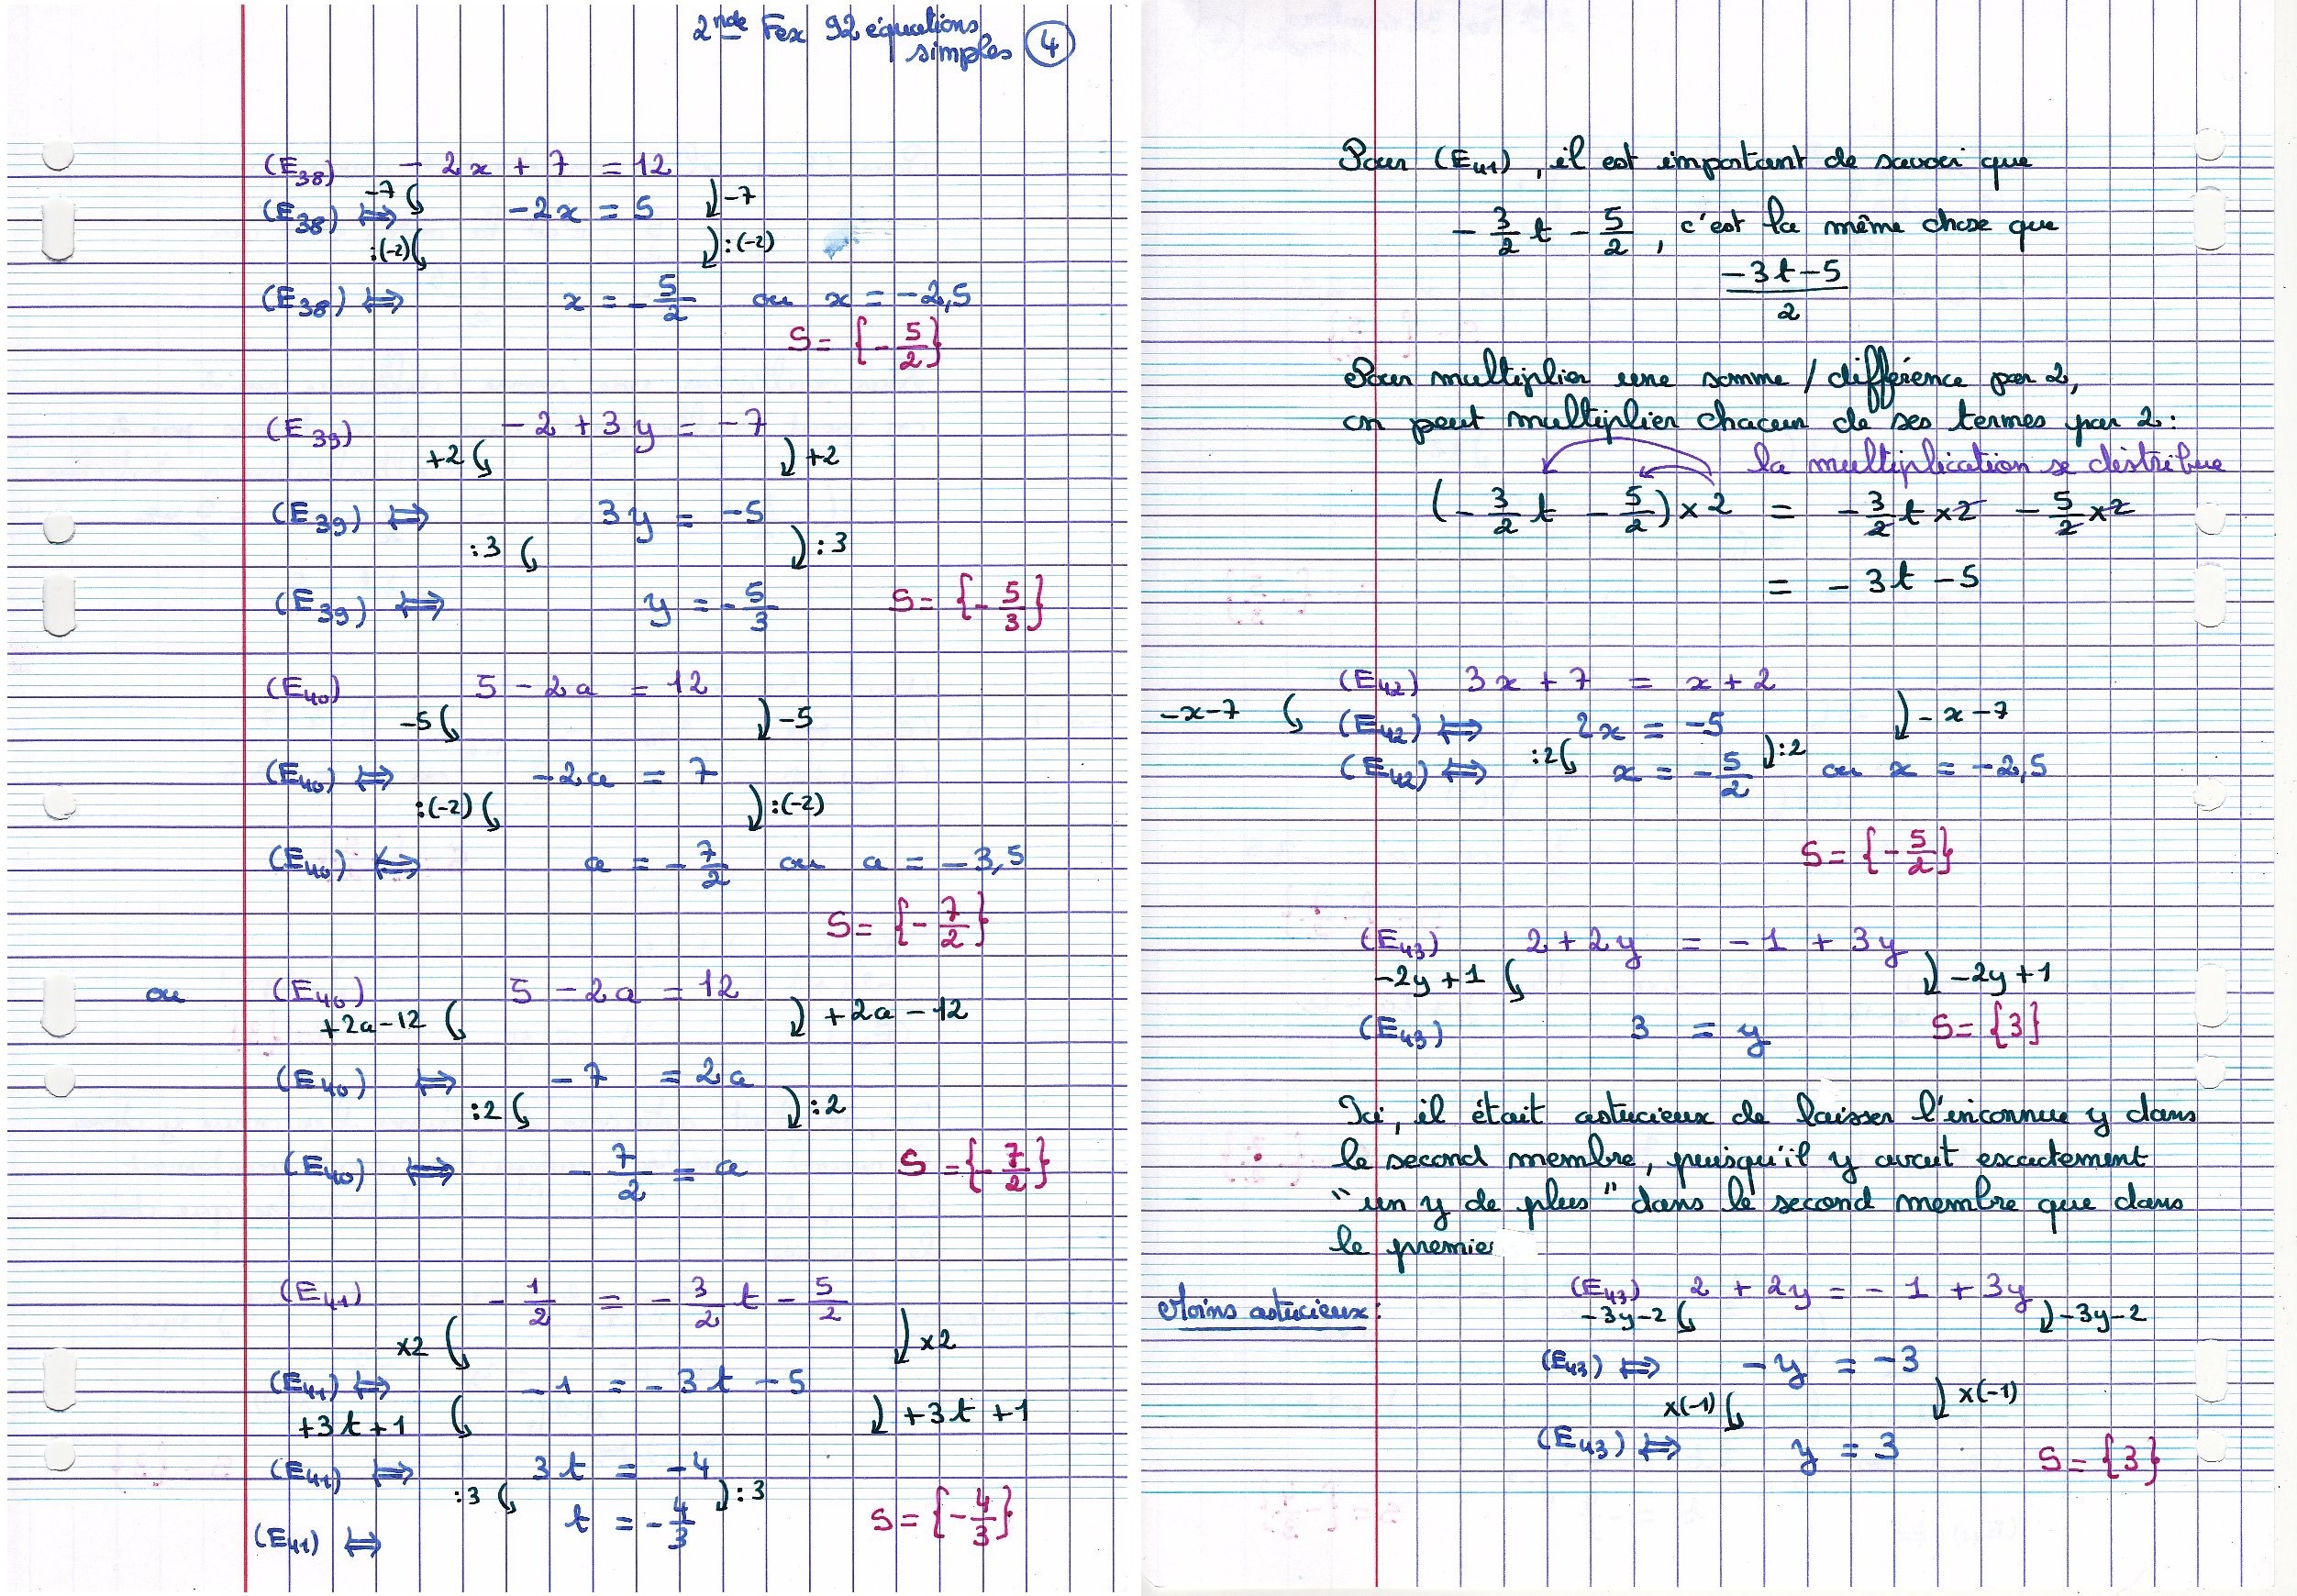 2nde Fex 92 équations
simples 4
(E38) - 2x + 7 = 12
-7 -7
(E38) ⟺ -2x = 5
:(-2) :(-2)
(E38) ⟺ x = -5/2 ou x = -2,5
S = {-5/2}
(E39) -2 + 3y = -7
+2 +2
(E39) ⟺ 3y = -5
:3 :3
(E39) ⟺ y = -5/3 S = {-5/3}
(E40) 5 - 2a = 12
-5 -5
(E40) ⟺ -2a = 7
:(-2) :(-2)
(E40) ⟺ a = -7/2 ou a = -3,5
S = {-7/2}
ou (E40) 5 - 2a = 12
+2a-12 +2a-12
(E40) ⟺ -7 = 2a
:2 :2
(E40) ⟺ -7/2 = a S = {-7/2}
(E41) -1/2 = -3/2 t - 5/2
x2 x2
(E41) ⟺ -1 = -3t - 5
+3t+1 +3t+1
(E41) ⟺ 3t = -4
:3 :3
(E41) ⟺ t = -4/3 S = {-4/3}
Pour (E41), il est important de savoir que
-3/2 t - 5/2, c'est la même chose que
(-3t-5)/2
Pour multiplier une somme / différence par 2,
on peut multiplier chacun de ses termes par 2 :
la multiplication se distribue
(-3/2 t - 5/2) x 2 = -3/2 t x 2 - 5/2 x 2
= -3t - 5
(E42) 3x + 7 = x + 2
-x-7 -x-7
(E42) ⟺ 2x = -5
:2 :2
(E42) ⟺ x = -5/2 ou x = -2,5
S = {-5/2}
(E43) 2 + 2y = -1 + 3y
-2y+1 -2y+1
(E43) 3 = y S = {3}
Ici, il était astucieux de laisser l'inconnue y dans
le second membre, puisqu'il y avait exactement
"un y de plus" dans le second membre que dans
le premier
Moins astucieux : (E43) 2 + 2y = -1 + 3y
-3y-2 -3y-2
(E43) ⟺ -y = -3
x(-1) x(-1)
(E43) ⟺ y = 3 S = {3}